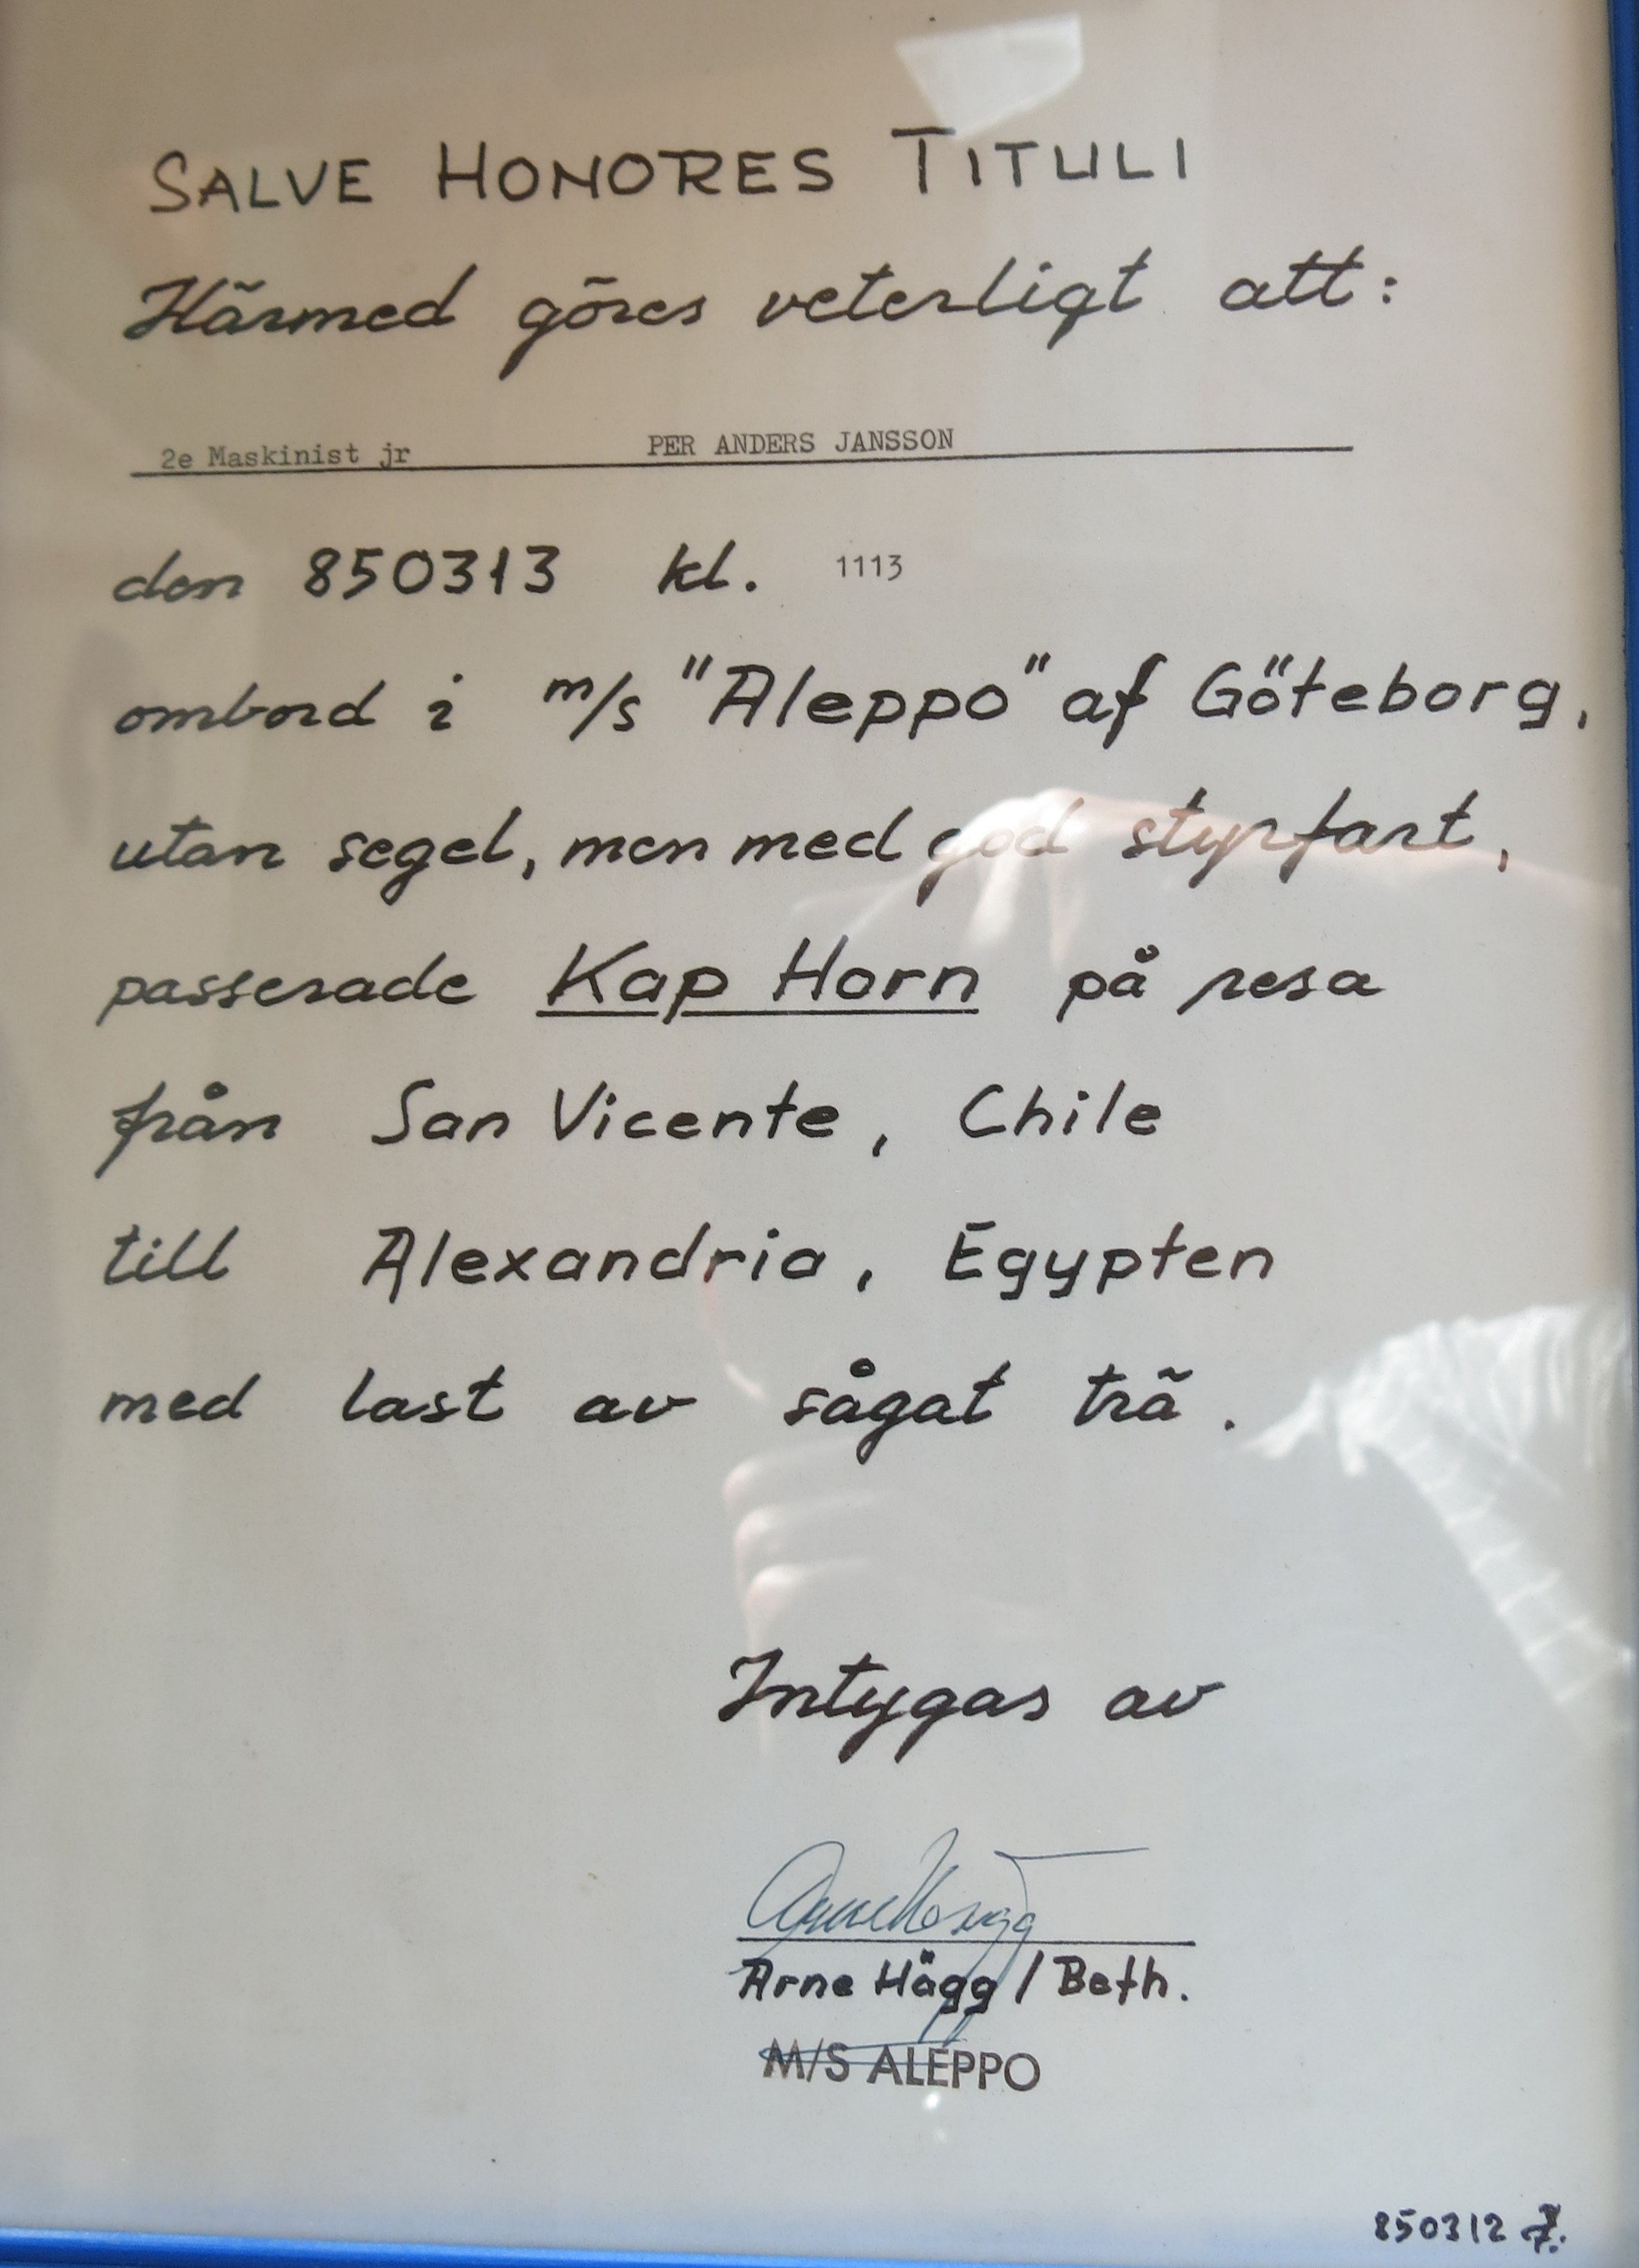 SALVE HONORES TITULI
Härmed göres veterligt att:
2e Maskinist jr PER ANDERS JANSSON
den 850313 kl. 1113
ombord i m/s "Aleppo" af Göteborg,
utan segel, men med god styrfart,
passerade Kap Horn på resa
från San Vicente, Chile
till Alexandria, Egypten
med last av sågat trä.
Intygas av
Arne Hägg
Arne Hägg / Befh.
M/S ALEPPO
850312